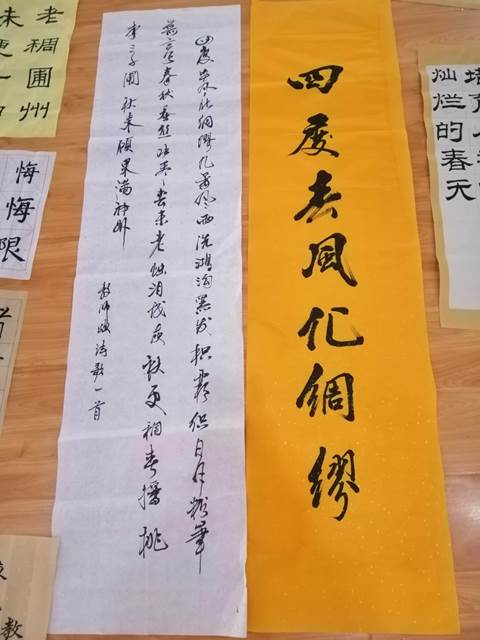 四度春风化绸缪
四度春风化绸缪几番风雨洗鸿沟黑发积霜织日月粉笔
无言写春秋蚕丝吐尽春未老烛泪成灰秋更稠春播桃
李三千圃秋来硕果满神州
教师颂诗歌一首
灿烂的春天
老稠圃州
未更一
悔悔限
教